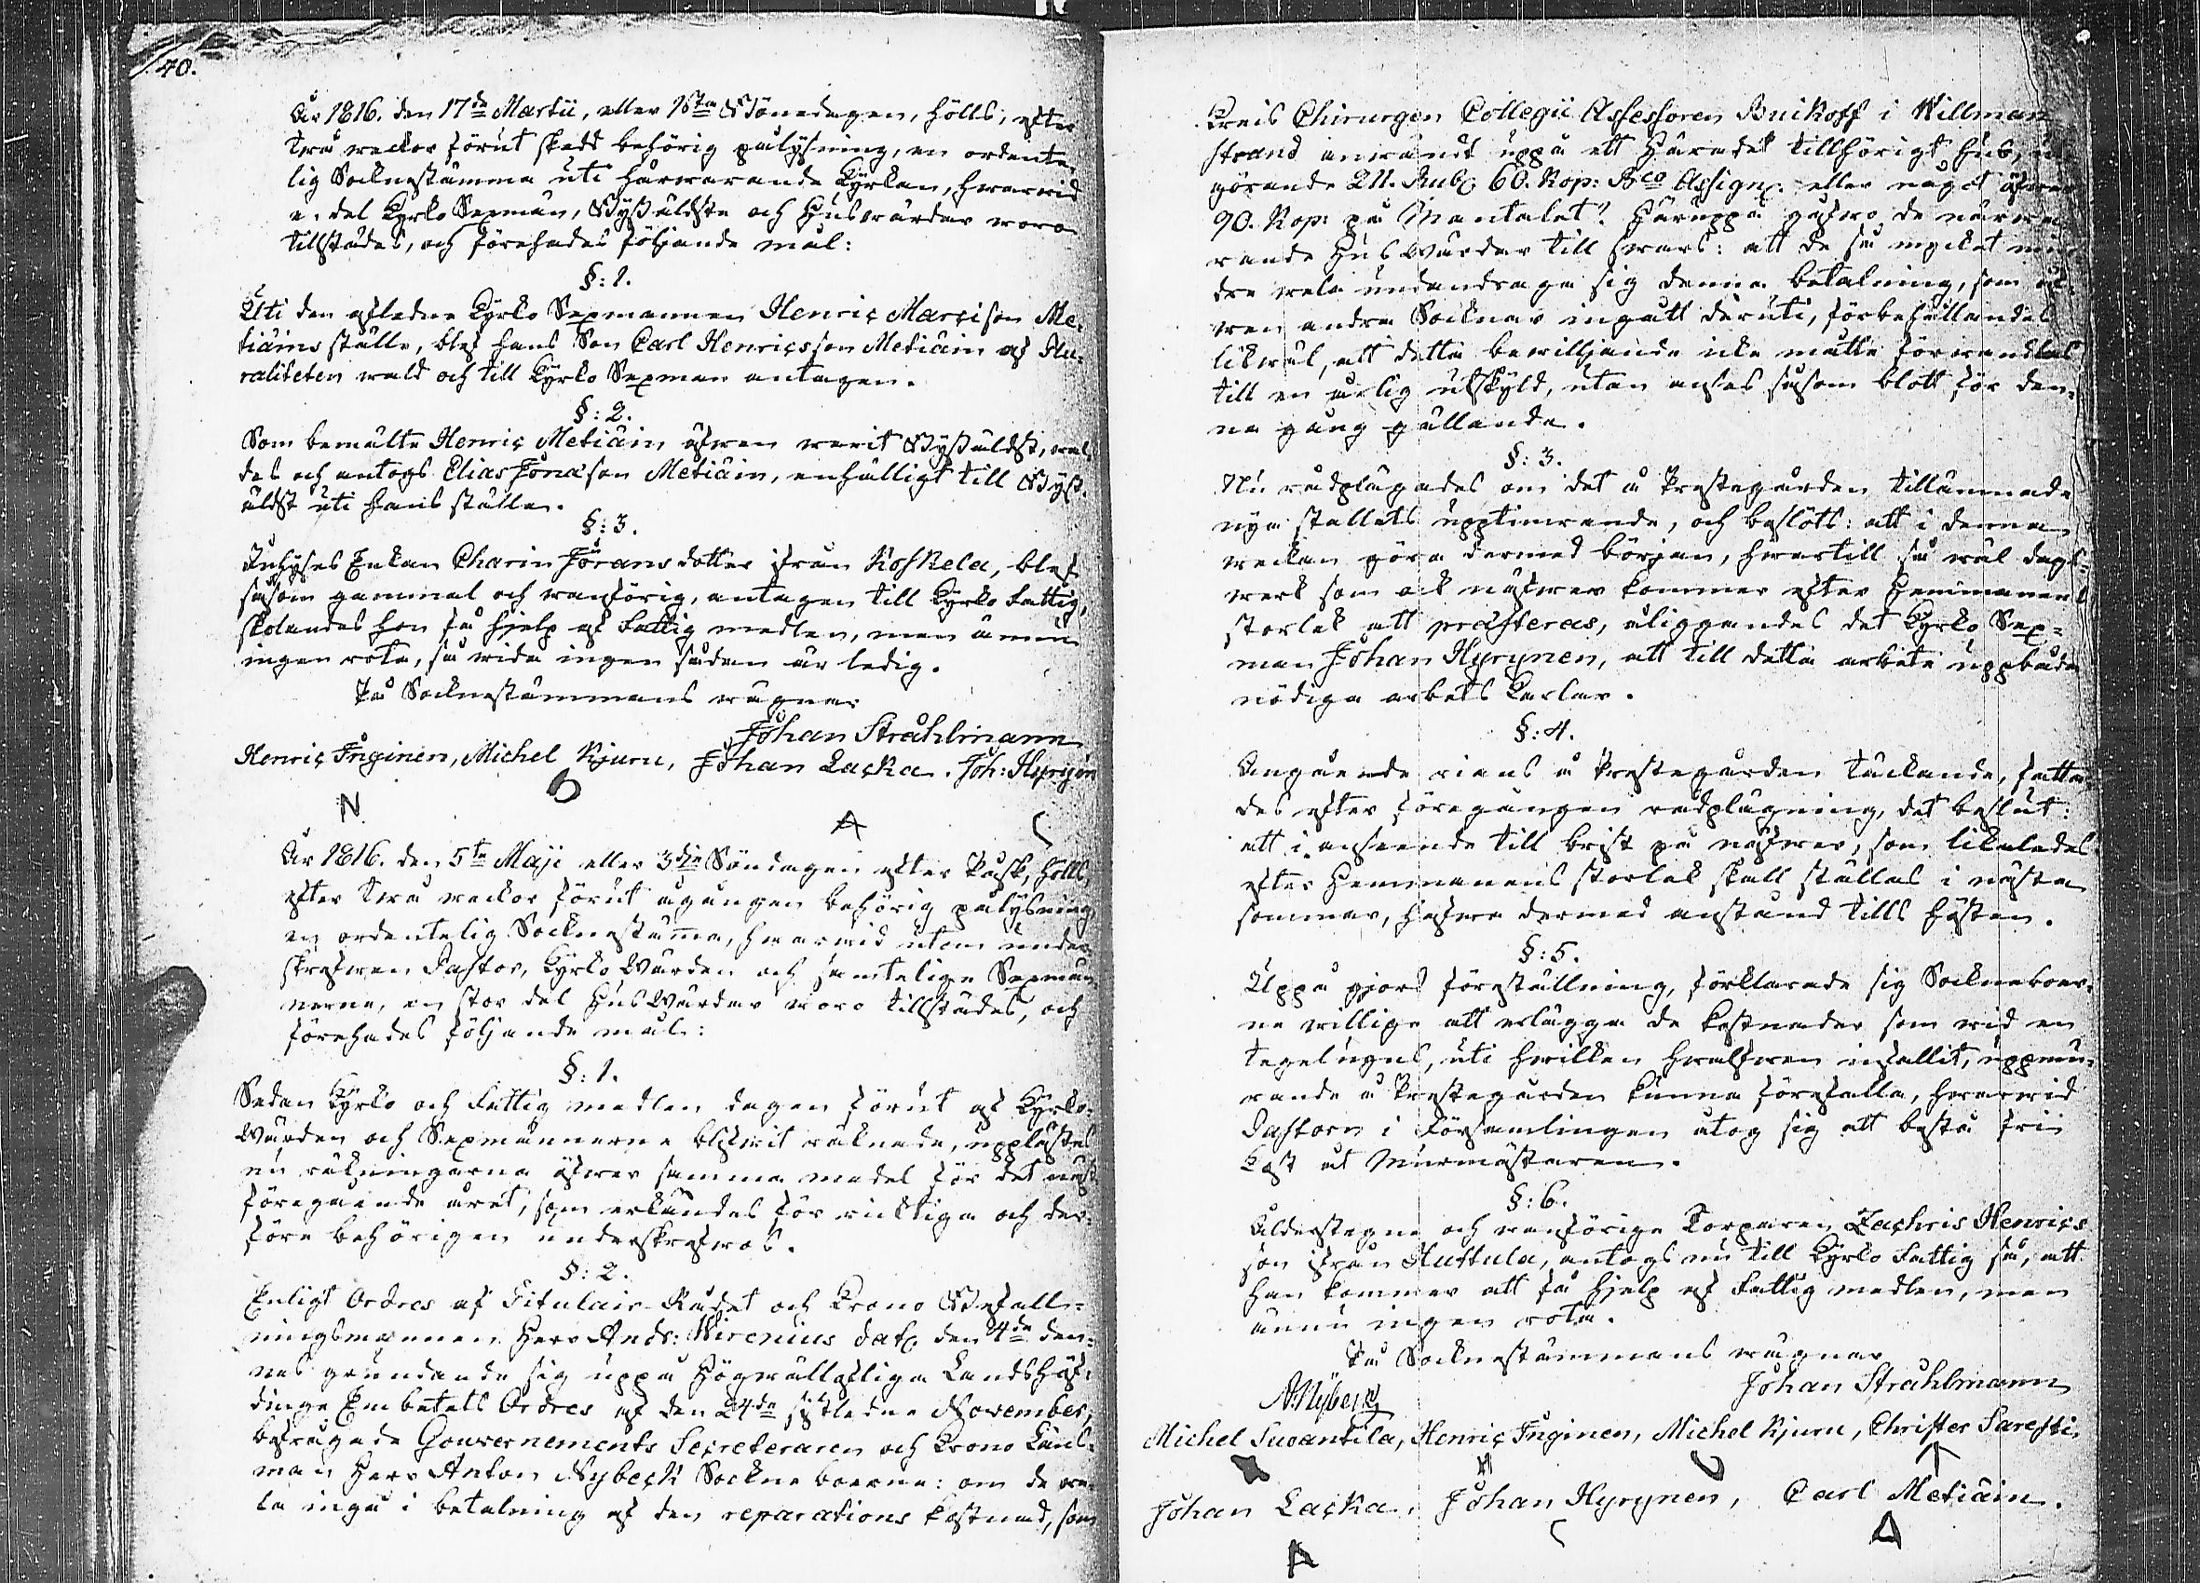 40.
År 1816. den 17de Martii, eller 1sta Bönedagen, hölls, efter
twå weckor förut skedt behörig pålysning, en ordente¬
lig Socknestämma uti härwarande Kyrkan, hwarwid
e. del Kyrko Sexmän, Byßäldste och Huswärdar woro
tillstädes, och förehades följande mål:
§: 1.
Uti den afledne Kyrko Sexmannen Henric Marcison Me-
tiäins ställe, blef hans Son Carl Henricsson Metiäin af Plu-
raliteten wald och till Kyrko Sexman antagen.
§: 2.
Som bemälte Henric Metiäin äfwen warit Byßäldst, wal-
des och antogs Elias Jönason Metiäin, enhälligt till Byß-
äldst uti hans ställe.
§: 3.
Inhyses Enkan Charin Jöransdotter ifrån Koskela, blef
såsom gammal och wanförig, antagen till Kyrko Fattig,
skolandes hon få hjelp af Fattig medlen, men ännu
ingen rota, så wida ingen sådan är ledig.
På Socknestämmans wägnar
Johan Strählmann
Henric Inginen, Michel Kjuru, Johan Lacka. Joh: Hyrynen
N A
År 1816. den 5te Maji eller 3dje Söndagen efter Påsk, hölls,
efter twå weckor förut ågången behörig pålysning
en ordentelig Socknestämma, hwarwid utom under
skrefwen Pastor, Kyrko Wärden och samtelige Sexmän-
nerne, en stor del HusWärdar woro tillstädes, och
förehades följande mål:
§: 1.
Sedan Kyrko och Fattig medlen dagen förut af Kyrko-
Wärden och Sexmännerne blifwit räknade, upplästes
nu räkningarna öfwer samma medel för det näst
föregående året, som erkändes för riktiga och der-
före behörigen underskrefwos.
§: 2.
Enligt Ordres af Titulair-Rådet och Krono Befall-
ningsmannen Herr Andr: Wirenius dat. den 4de den-
nes grundande sig uppå Högwällofliga Landshöf-
dinge Embetets Ordres af den 24de sistledne November,
befrågade Gouvernements Secreteraren och Krono Läns-
man Herr Anton Nybeck Sockneboerne: om de we-
la ingå i betalning af den reparations kostnad, som
Kreis Chirurgen Collegii Assessoren Buikoff i Willman
strand anwändt uppå ett Häradet tillhörigt hus, ut-
görande 211. Rub. 60. Kop: Bco Assign. eller något öfwer
90. Kop: på Mantalet? Häruppå gåfwo de närwa-
rande HusWärdar till swars: att de så mycket min-
dre wela undandraga sig denna betalning, som äf-
wen andra Socknar ingått däruti, förbehållandes
likwäl, att detta bewilljande icke måtte förwandlas
till en årlig utskyld, utan anses såsom blott för den-
na gång gällande.
§: 3.
Nu rådplägades om det å Prestegården tillämnade
nya stallets upptimrande, och beslöts: att i denna
weckan göra dermed början, hwartill så wäl dags-
werk som ock näfwer kommer efter Hemmanens
storlek att præsteras, åliggandes det Kyrko Sex-
man Johan Hyrynen, att till detta arbete uppbåda
nödiga arbets Karlar.
§: 4.
Angående rians å Prestegården täckande, fatta-
des efter föregången rådplägning, det beslut:
att i anseende till brist på näfwer, som likaledes
efter Hemmanens storlek skall ställas i nästa
sommar, hafwa dermed anstånd tills hösten.
§: 5.
Uppå gjord föreställning, förklarade sig Sockneboer-
ne willige att erlägga de kostnader som wid en
tegelugns, uti hwilken hwalfwen infallit, uppmu-
rande å Prestegården kunna förefalla, hwarwid
Pastorn i Församlingen åtog sig att bestå fri
kost åt Murmästaren.
§: 6.
Ålderstegne och wanförige Torparen Zachris Henrics
son ifrån Huttula, antogs nu till Kyrko Fattig så, att
han kommer att få hjelp af Fattig medlen, men
ännu ingen rota.
På Socknestämmans wägnar
Johan Strählmann
A. Nybeck
Michel Suoantila, Henric Inginen, Michel Kjuru, Christer Saresti,
Johan Lacka, Johan Hyrynen, Carl Metiäin.
A